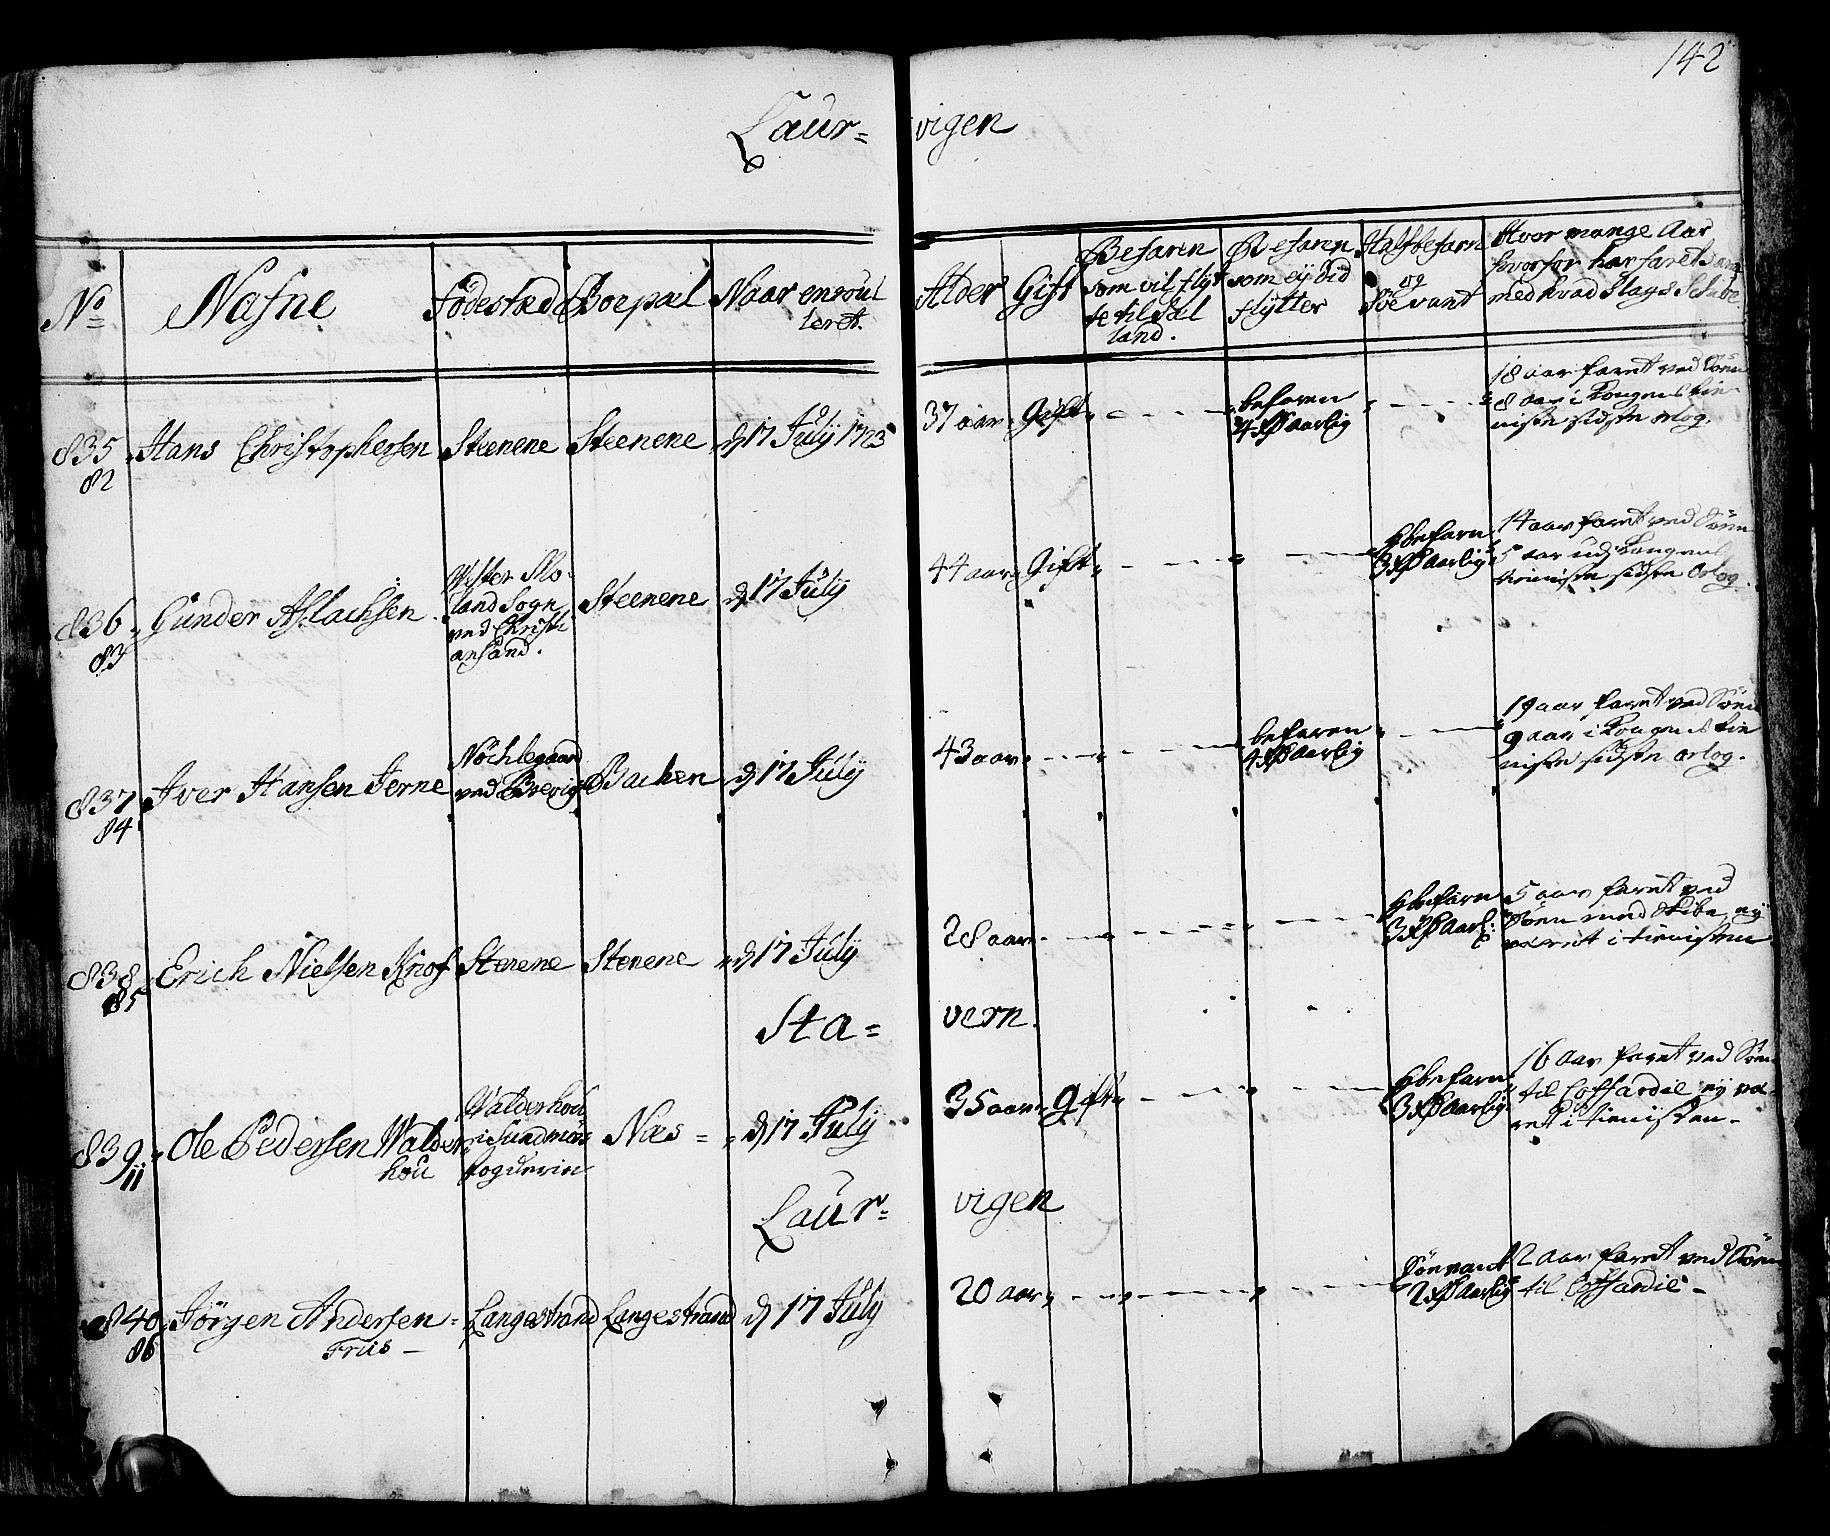 142
Laur= vigen
No Nafne Födestæd Boepæl Naar enroul leret. Alder Gift Befaren som vil flyt te til Sæl land. Befaren som ej vid flytter Halfbefarn og Söevant Hvor mange Aar
hvorfor har faret
med hvad Slags Skibe
835 Hans Christophersen Steenene Steenene d 17 July 1723 37 aar Gift befaren 4 xß aarlig 18 aar faret ved Söen
82 8 aar i Kongens tie
niste sidste orlog.
836 Gunder Aslachsen Wester Mo=
land Sogn
ved Christi
ansand. Steenene d 17 July 44 aar Gift hbefarn 3 xß aarlig 14 aar faret ved Söen
83 5 aar udj Kongens
tieniste sidste Orlog.
837 Iver Hansen Jerne Nöchlegaard
ved Brevig Bachen d 17 July 43 aar befaren 4 xß aarlig 19 aar faret ved Söen
84 9 aar i Kongens tie
niste sidste orlog.
838 Erich Nielsen Knof Stenene Stenene d 17 July 28 aar hbefarn 3 xß aarl: 5 aar faret ved
85 Söen med Skibe, ej
været i tienisten
Sta= vern.
839 Ole Pedersen Walder
hou Walderhou
i Sundmörs
fogderie Næs d 17 July 35 aar gift hbefarn 3 xß aarlig 16 aar faret ved Söen
11 til Coffardie ej væ
ret i tienisten -
Laur= vigen
840 Jörgen Andersen
Friis - Langestrand Langestrand d 17 July 20 aar Söevant 2 xß aarlig 2 aar faret ved Söen
86 til Coffardie -